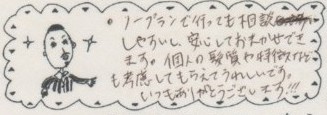 ・ノープランで行っても相談
しやすいし、安心しておまかせでき
ます。個人の髪質や特徴なども
も考慮してもらえてうれしいです。
いつもありがとうございます!!!